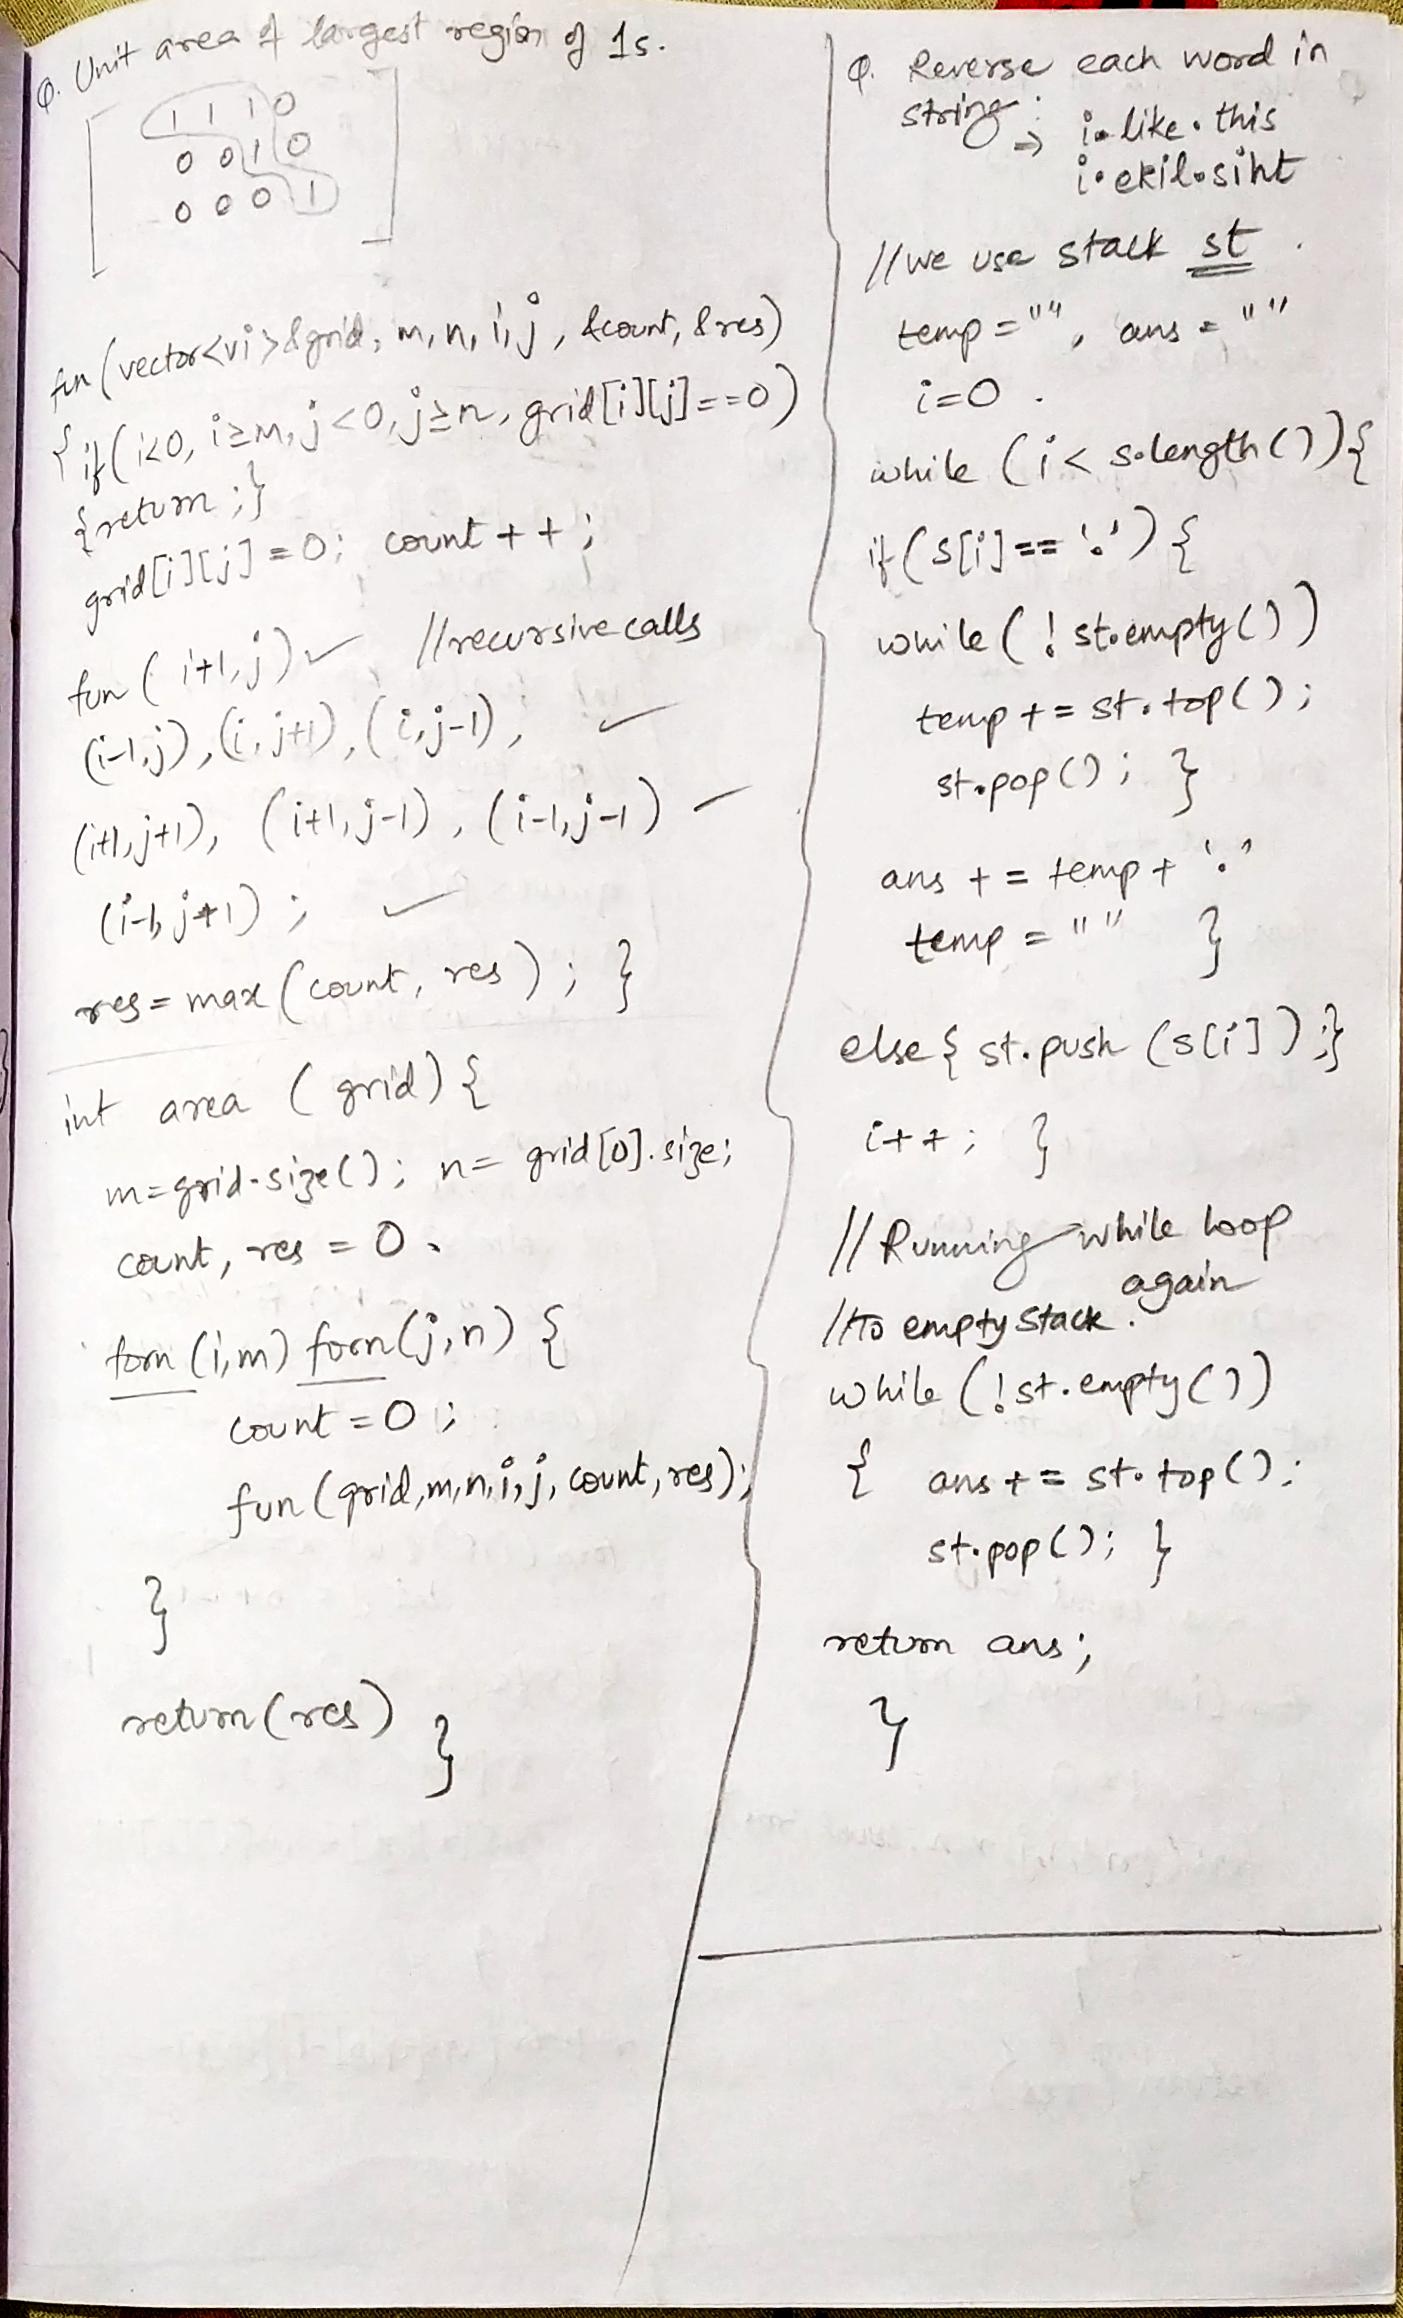 Q. Unit area of largest region of 1s.
1 1 1 0
0 0 1 0
0 0 0 1
fun (vector<vi>&grid, m, n, i, j, &count, &res)
{ if (i<0, i≥m, j<0, j≥n, grid[i][j]==0)
{return;}
grid[i][j]=0; count++;
fun (i+1,j) ✓ //recursive calls
(i-1,j), (i,j+1), (i,j-1), ✓
(i+1,j+1), (i+1,j-1), (i-1,j-1) ✓
(i-1,j+1); ✓
res = max (count, res); }
int area (grid) {
m=grid.size(); n= grid[0].size;
count, res = 0.
forn (i,m) forn(j,n) {
count = 0;
fun (grid,m,n,i,j, count, res);
}
return(res) }
Q. Reverse each word in
string: ⇒ i.like.this
i.ekil.siht
//we use stack st.
temp = "", ans = ""
i=0.
while (i< s.length()){
if (s[i]=='.') {
while (! st.empty())
temp += st.top();
st.pop(); }
ans += temp + '.'
temp = "" }
else { st.push (s[i]);}
i++; }
// Running while loop
again
//to empty stack.
while (!st.empty())
{ ans += st.top();
st.pop(); }
return ans;
}